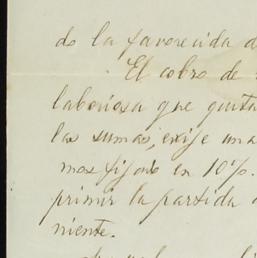 do la favorecida d
El cobro de
laboriosa que quita
las sumas, exije una
mos fijado en 10%.
primir la partida
niente.